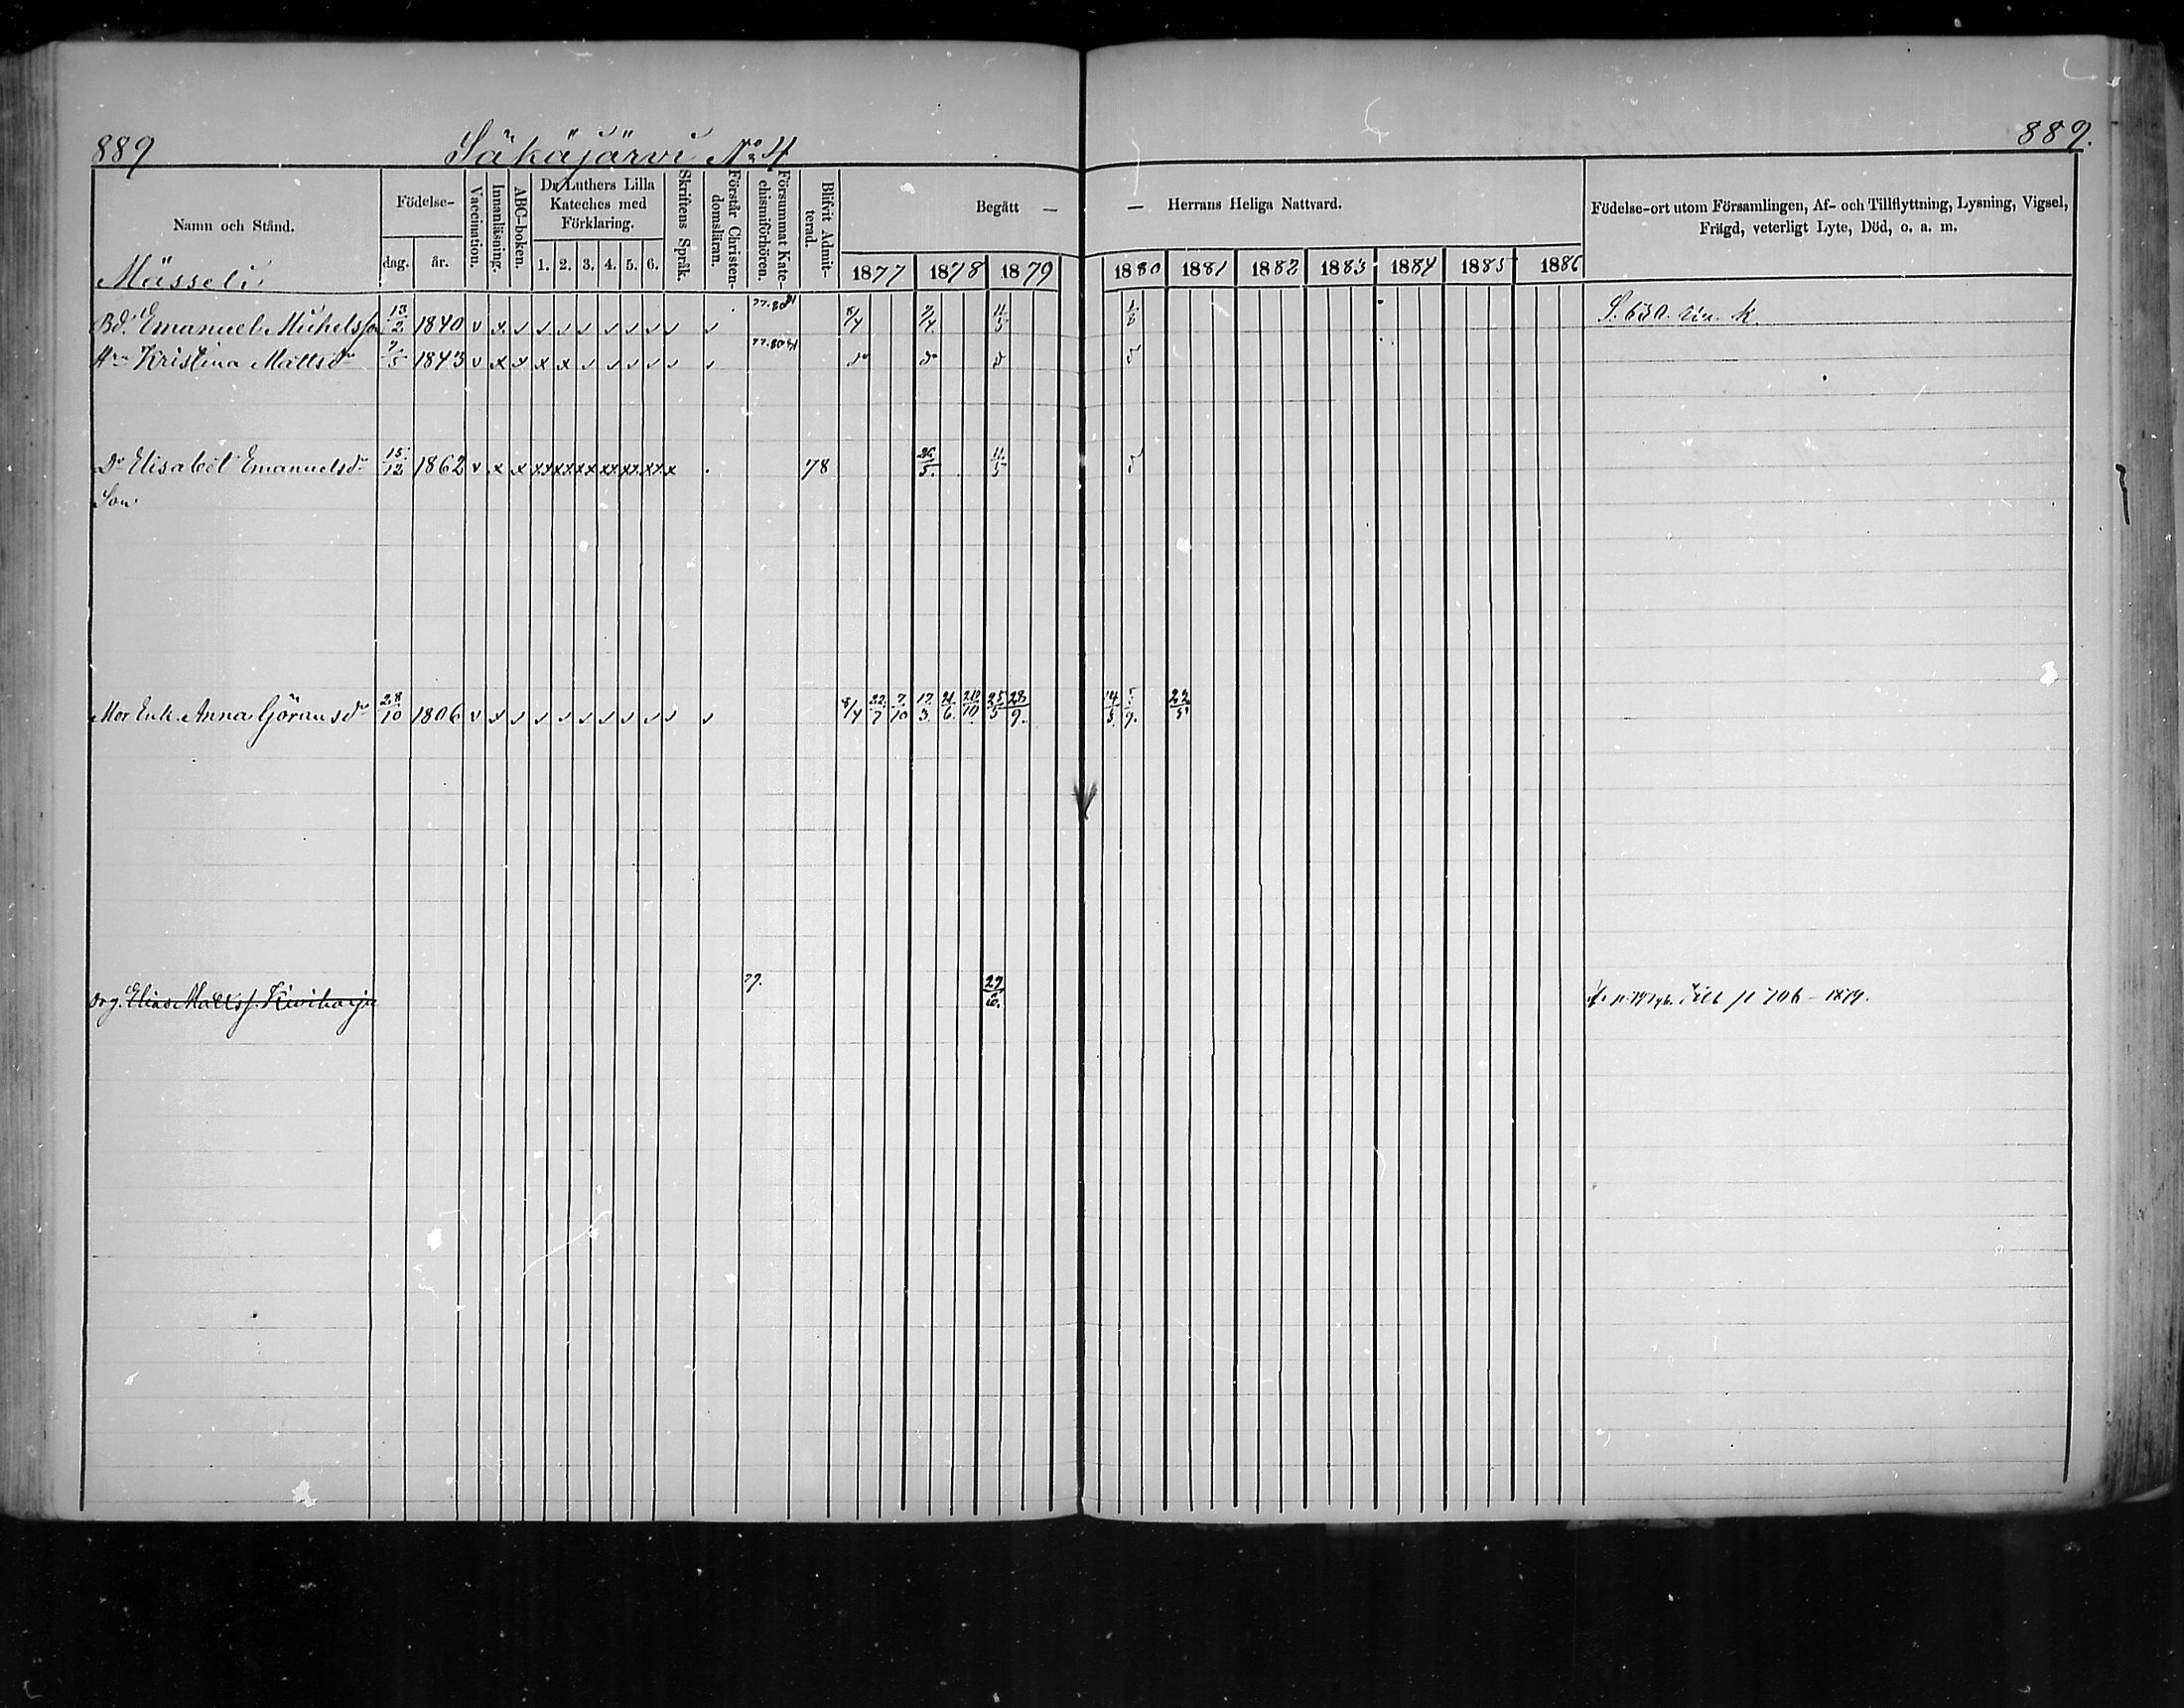 889 Säkäjärvi No 4 889.
Namn och Stånd. Födelse- dag. år. Vaccination. Innanläsning. ABC-boken. Dr. Luthers Lilla Kateches med Förklaring. 1. 2. 3. 4. 5. 6. Skriftens Språk. Förstår Christendomsläran. Försummat Katechismiförhören. Blifvit Admitterad. Begått — — Herrans Heliga Nattvard. Födelse-ort utom Församlingen, Af- och Tillflyttning, Lysning, Vigsel, Frägd, veterligt Lyte, Död, o. a. m.
1877 1878 1879 1880 1881 1882 1883 1884 1885 1886
Mässeli
Bd. Emanuel Michelsson 13/2 1840 v x v v v v v v v v v 77. 80 81 8/4 2/4 11/5 S. 630.
Hu Kristina Mattsdr 7/5 1843 v x x x x v v v v v v 77. 80 81 do do d d
Dr Elisabet Emanuelsdr 15/12 1862 v x x xx xx xx xx xx xx x 78 26/5. 11/5 d
Son
Mor Enk. Anna Göransdr 28/10 1806 v x v v v v v v v v v 8/4 22/7 7/10 17/3. 21/6. 20/10 25/5 28/9. 14/3. 5/9. 22/5
Drg. Elias Mattss. Kiviharju 77. 29/6. 706 - 1879.